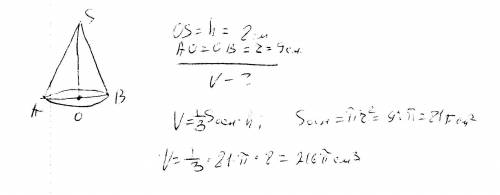 S
A
B
O
OS = h = 2см
AO = OB = r = 9см
V - ?
V = 1/3 Sосн · h;
Sосн = πr² =
V = 1/3 · 81 · π · 8 = 216π см³